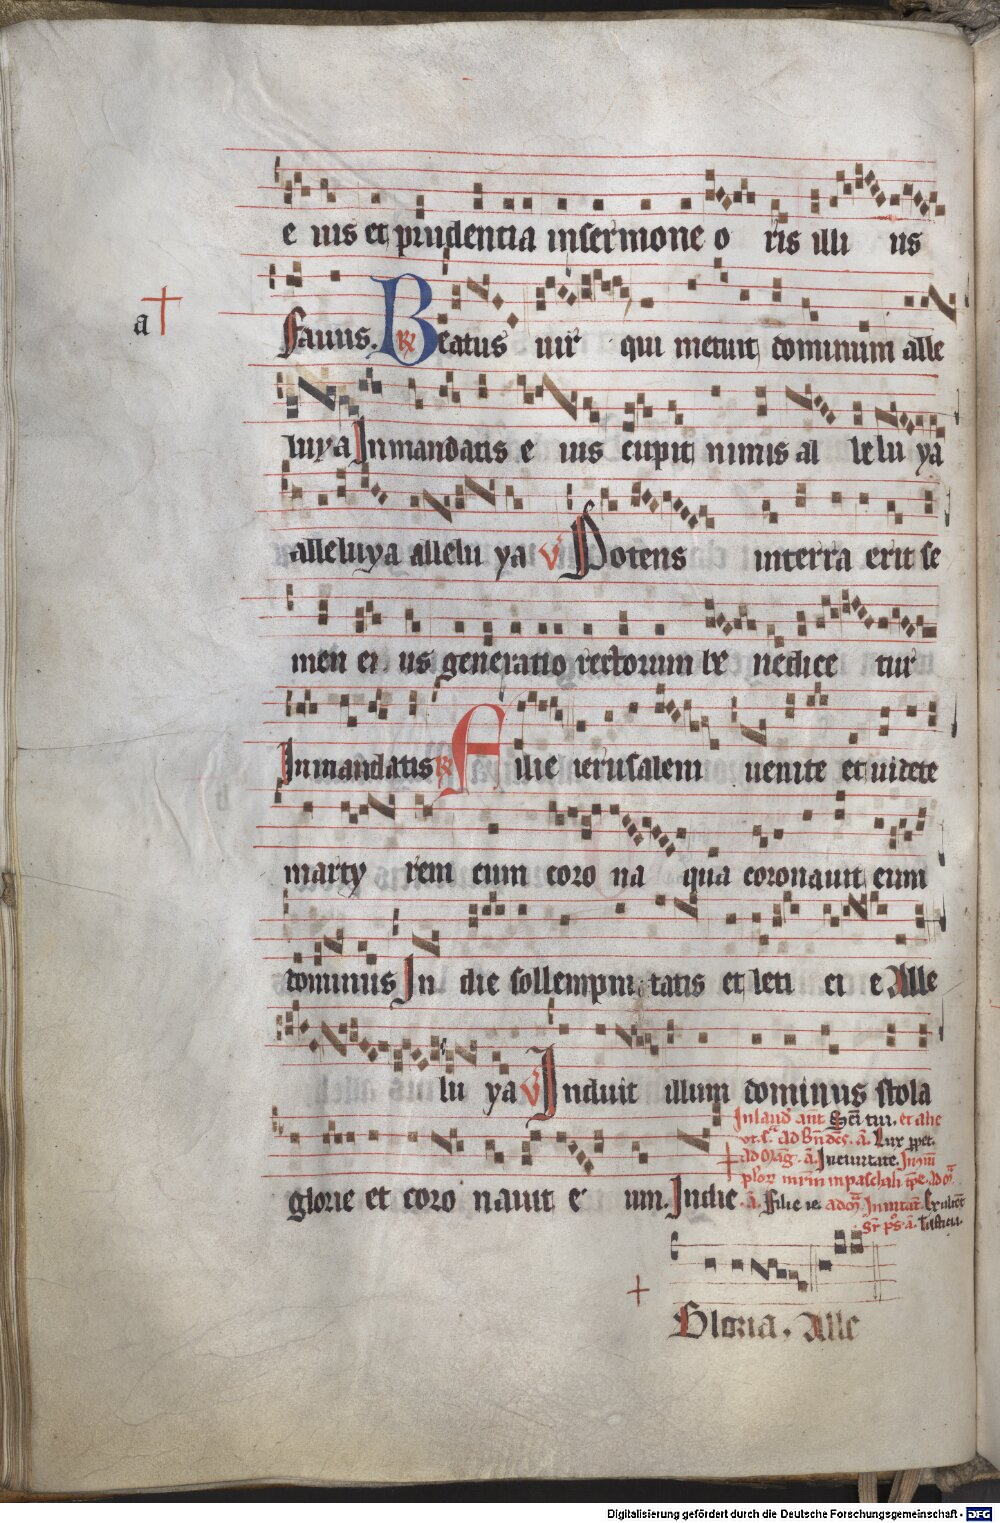 e ius et prudentia in sermone o ris illi us
Fauus. R Beatus uir qui metuit dominum alle
a
luya In mandatis e ius cupit nimis al le lu ya
alleluya allelu ya V Potens in terra erit se
men ei us generatio rectorum be nedice tur
In mandatis R Filie ierusalem uenite et uidete
marty rem cum coro na qua coronauit eum
dominus In die sollempni tatis et leti ci e Alle
lu ya V Induit illum dominus stola
glorie et coro nauit e um. In die
Lux
Filie ie
Gloria. Alle
Digitalisierung gefördert durch die Deutsche Forschungsgemeinschaft - DFG